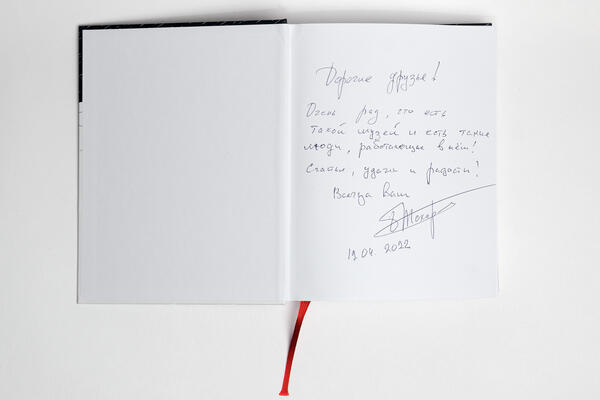 Дорогие друзья!
Очень рад, что есть
такой музей и есть такие
люди, работающие в нём!
Счастья, удачи и радости!
Всегда Ваш
19.04.2022